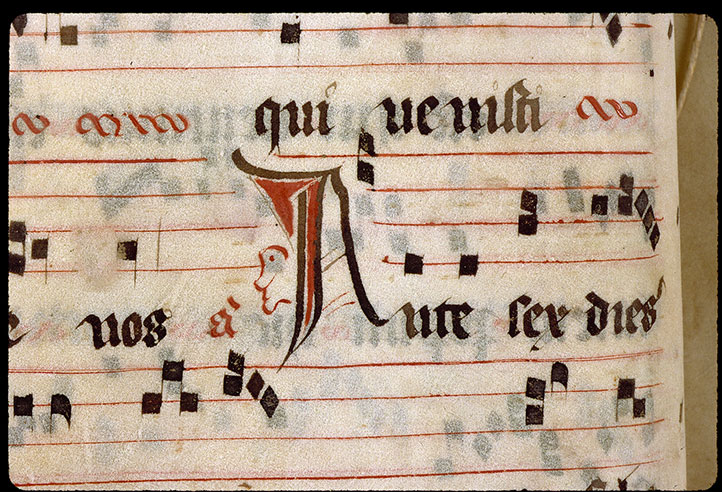 qui venisti
e nos a Ante sex dies